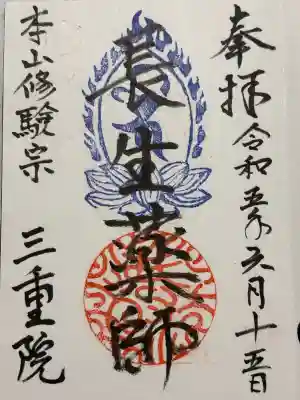 奉拝 令和五年六月十五日
長生薬師
本山修験宗
三重院